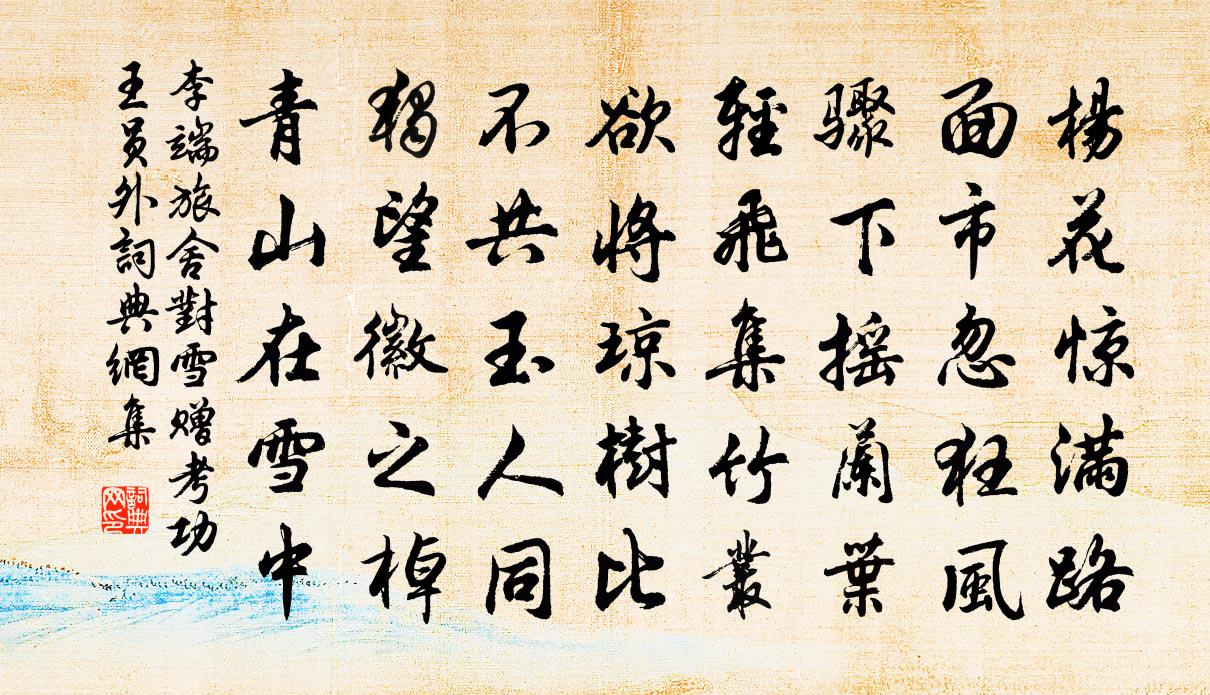 楊花惊满路
面市忽狂風
驟下摇蘭葉
輕飛集竹叢
欲將琼樹比
不共玉人同
獨望徽之棹
青山在雪中
李端旅舍對雪赠考功
王員外詞典網集
詞典
网印